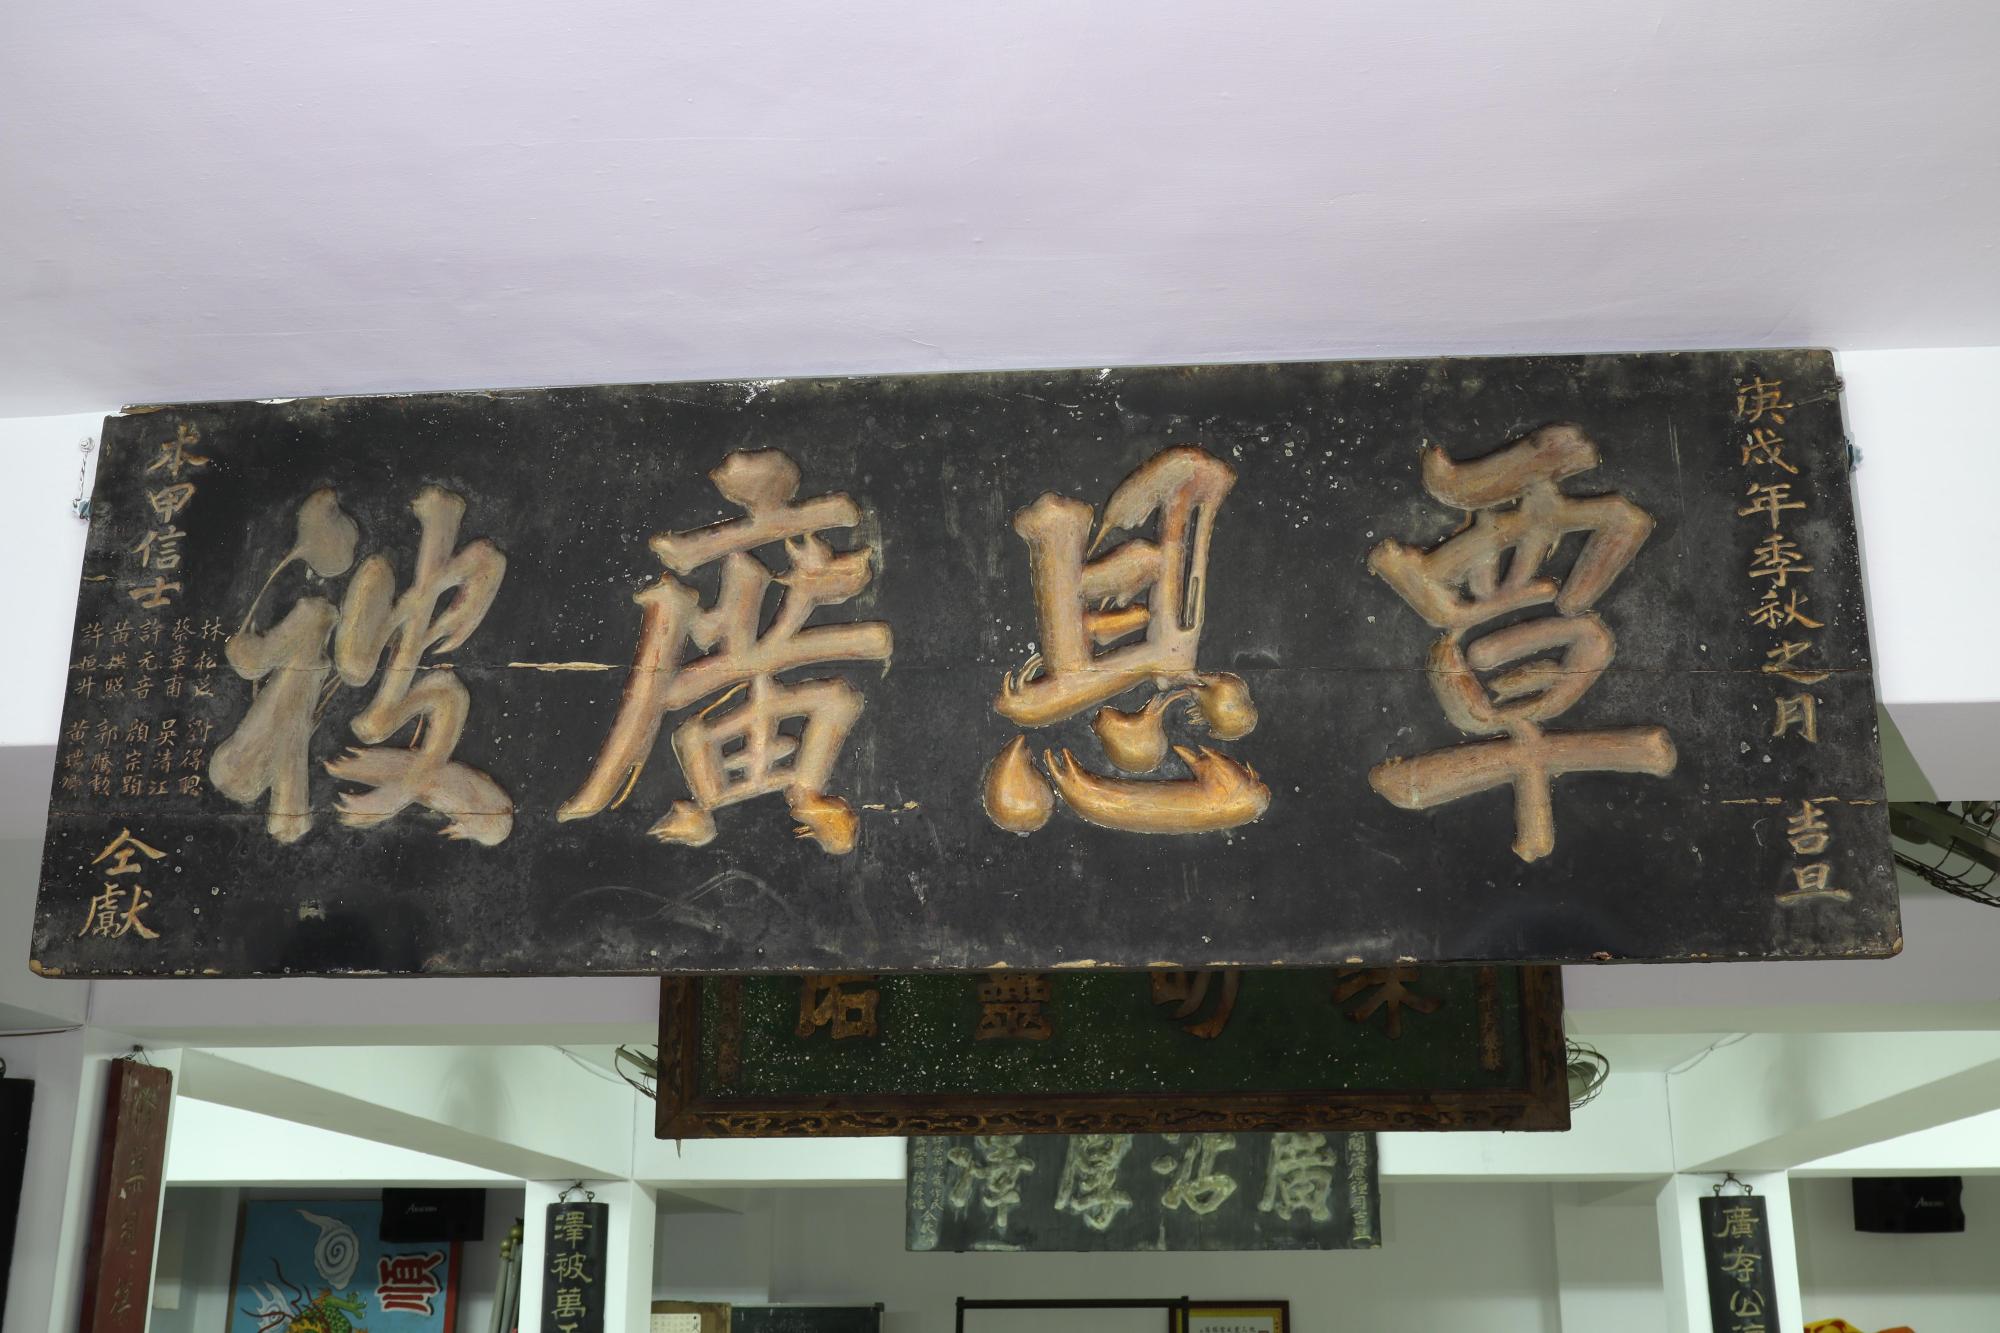 庚戌年季秋之月 吉旦
覃恩廣被
本甲信士
林松茂 劉得聰
蔡章甫 吳清江
許元音 顏宗顯
黃拱照 郭騰勲
許恒升 黃瑞卿
仝獻
靈
廣沾厚澤
澤被萬
廣存公
順